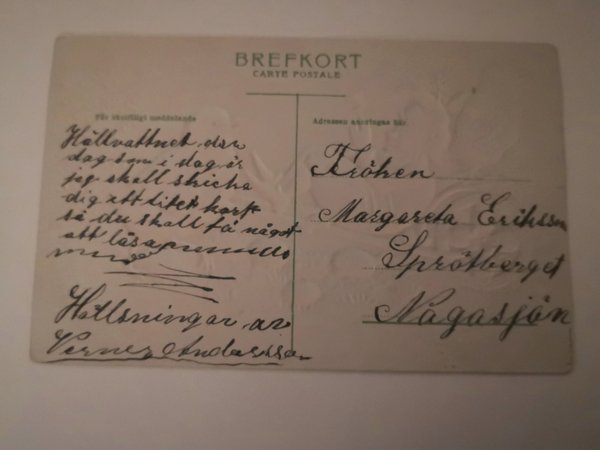 BREFKORT
CARTE POSTALE
För skriftligt meddelande
Adressen anbringas här
Hällvattnet den
dag som i dag är
jag skall skicka
dig ett litet kort
så du skall få något
att läsa
Hällsningar av
Verner Andersson
Fröken
Margareta Eriksson
Sprötberget
Nagasjön